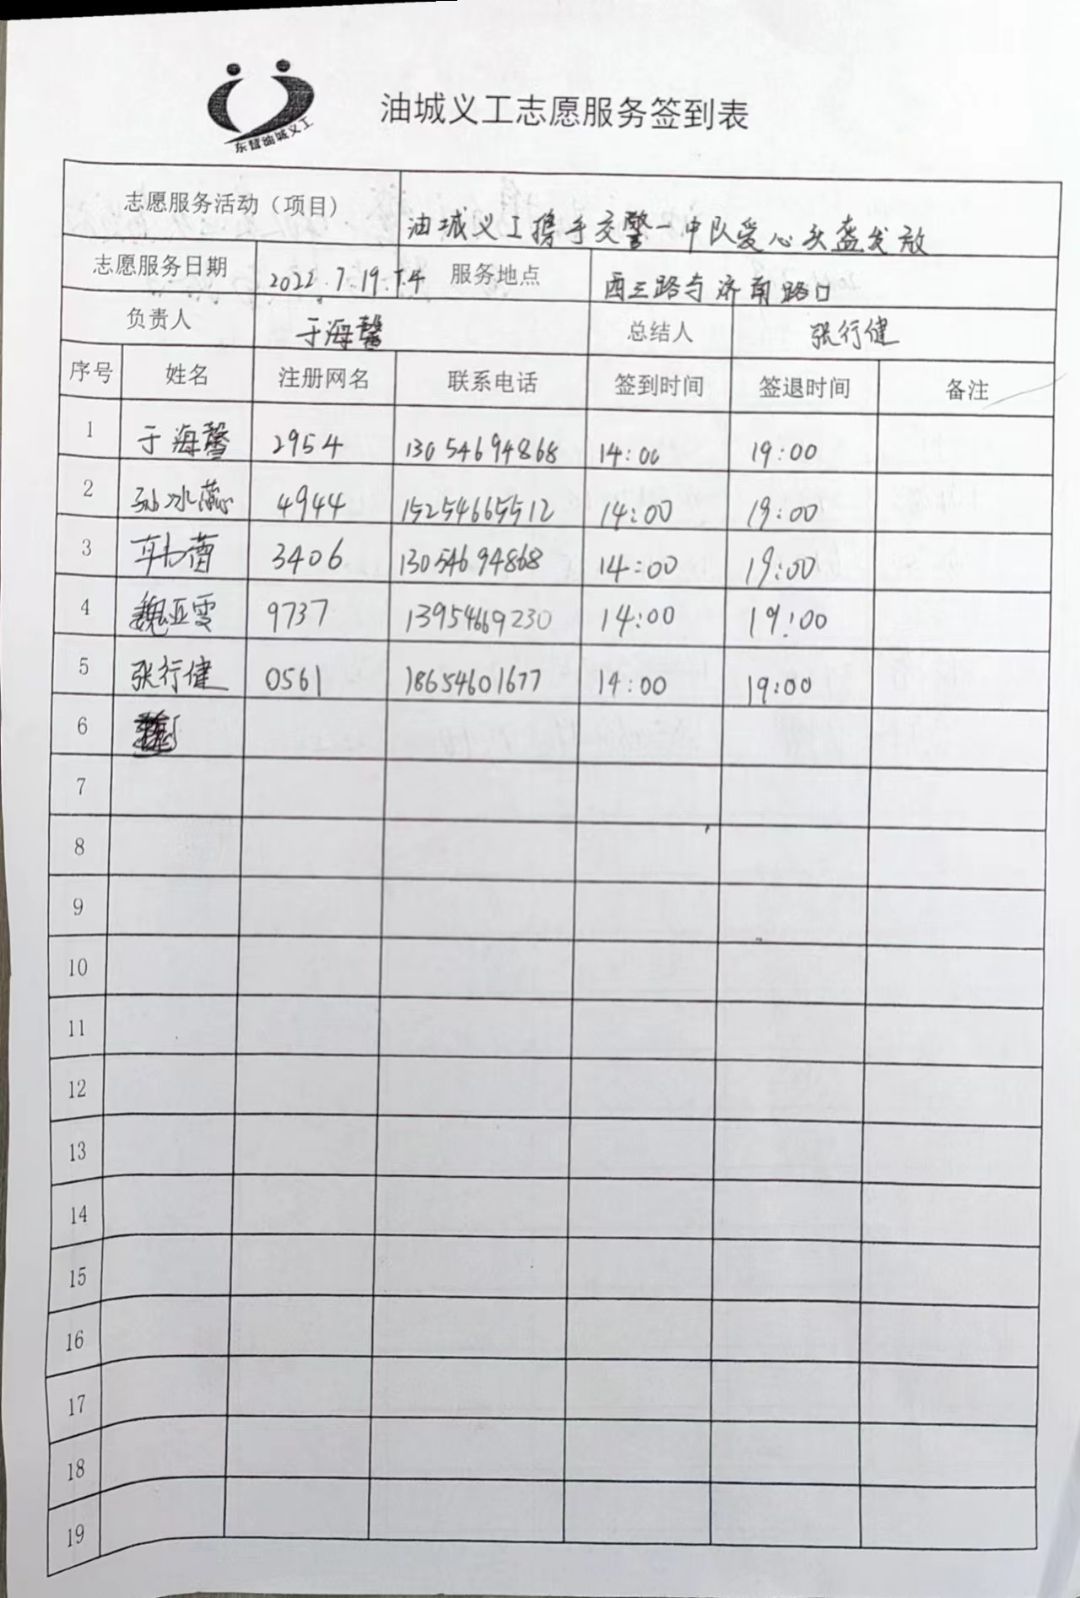 东营油城义工
油城义工志愿服务签到表
志愿服务活动（项目） 油城义工携手交警一中队爱心头盔发放
志愿服务日期 2022.7.19.下4 服务地点 西三路与济南路口
负责人 于海馨 总结人 张行健
序号 姓名 注册网名 联系电话 签到时间 签退时间 备注
1 于海馨 2954 13054694868 14:00 19:00
2 孙冰蕊 4944 15254665512 14:00 19:00
3 韩蕾 3406 13054694868 14:00 19:00
4 魏亚雯 9737 13954669230 14:00 19:00
5 张行健 0561 18654601677 14:00 19:00
6
7
8
9
10
11
12
13
14
15
16
17
18
19